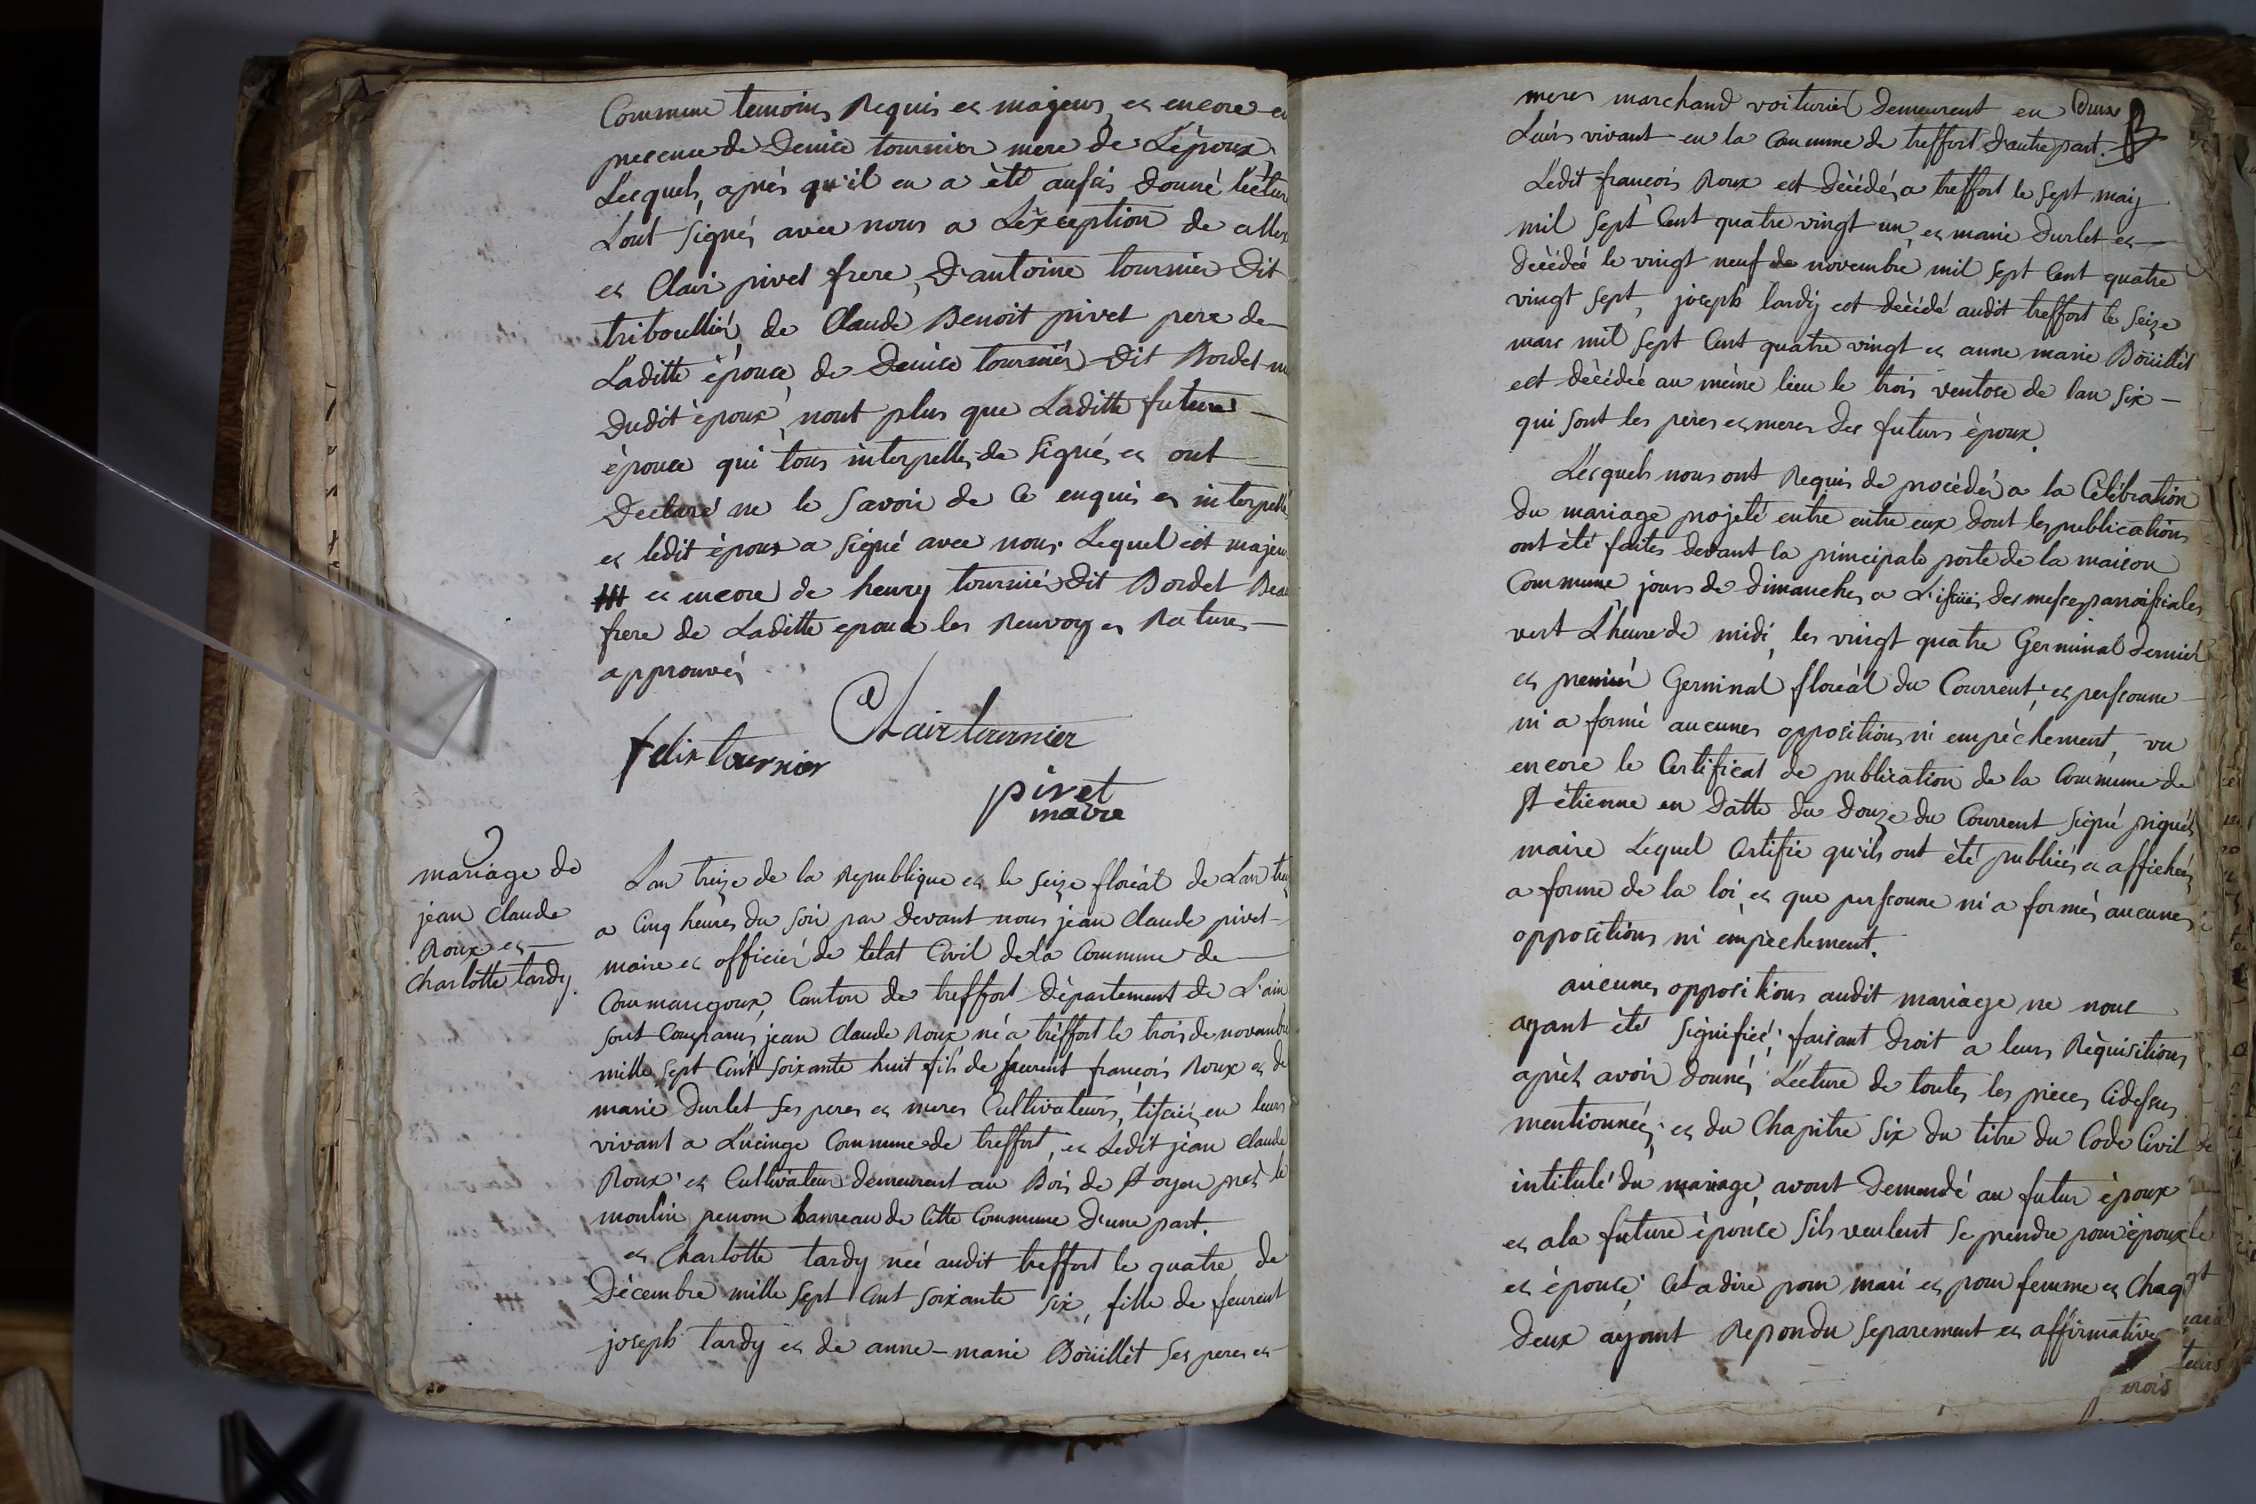 Commune temoins Requis et majeurs, et encore en
presence de Denise tournier mere de L'époux,
Lesquels, après qu'il en a èté aussis donné lectur
L'ont signés avec nous a L'éxception de
et Clair pivet frere, D'antoine tournier Dit
triboullier, de Claude Benoit pivet pere de
Laditte épouce, de Denise tournier Dit Bordet m
Dudit époux, nont plus que Laditte future
épouce qui tous interpelles de Signés et ont
Declaré ne le Savoir de Ce enquis et interpellé
et ledit époux a signé avec nous. Lequel est majeur
et encore de henry tournier Dit Bordet Beau
frere de Laditte epouce les Renvoy et Ratures
approuvés
Clair tournier
felix tournier
pivet
maire
mariage de
jean Claude
Roux et
Charlotte tardy.
Lan treize de la Republique et le seize floréal de Lan trei
a Cinq heures du soir par devant nous jean Claude pivet
maire et officier de létat Civil de la Commune de
Courmangoux, Canton de treffort Département de L'ain
sont Comparus jean Claude Roux né a treffort le trois de novembre
mille sept Cent soixante huit fils de feurent francois Roux et de
marie Durlet ses peres et meres Cultivateurs, en leurs
vivant a Lucinge Commune de treffort, et Ledit jean Claude
Roux et Cultivateur demeurent au Bois de St oyen près le
moulin hameau de Cette Commune D'une part.
et Charlotte tardy née audit treffort le quatre de
Décembre mille Sept Cent Soixante six, fille de feurent
joseph tardy et de anne-marie Boüillet ses peres et
meres marchand voiturier demeurent en
Leurs vivant en la Commune de treffort d'autre part.
Ledit françois Roux est Décédé, a treffort le Sept maij
mil Sept Cent quatre vingt un, et marie Durlet et
Décédée le vingt neuf de novembre mil Sept Cent quatre
vingt Sept, joseph tardij est décédé audit treffort le Seize
mars mil Sept Cent quatre vingt et anne marie Boüillet
est Décédée au même lieu le trois ventose de lan Six
qui sont les peres et meres des futurs époux.
Lesquels nous ont Requis de procéder a la Célébration
du mariage projeté entre entre eux dont les publications
ont été faites devant la principale porte de la maison
Commune jours de dimanches a L'issüe des messes paroissiales
vert L'heure de midi, les vingt quatre Germinal dernier
et premier Germinal floréal du Courrent, et perssonne
ni a formé aucunes oppositions ni empêchement, vu
encore le Certificat de publication de la Commune de
St étienne en Datte du douze du Courrent signé
maire Lequel Certifie qu'ils ont été publiées et affichées
a forme de la loi, et que perssonne ni a formés aucunes
oppositions ni empêchement.
aucunes oppositions audit mariage ne nous
ayant été signifiée; faisant droit a leurs Réquisitions
après avoir donnés Lecture de toutes les pieces Cidessus
mentionnées, et du Chapitre Six du titre du Code Civil
intitulé du mariage, avont Demandé au futur époux
et ala future épouce Sils veulent Se prendre pour époux
et épouce, Cet adire pour mari et pour femme et Chaq
Deux ayant Repondu Separement et affirmative